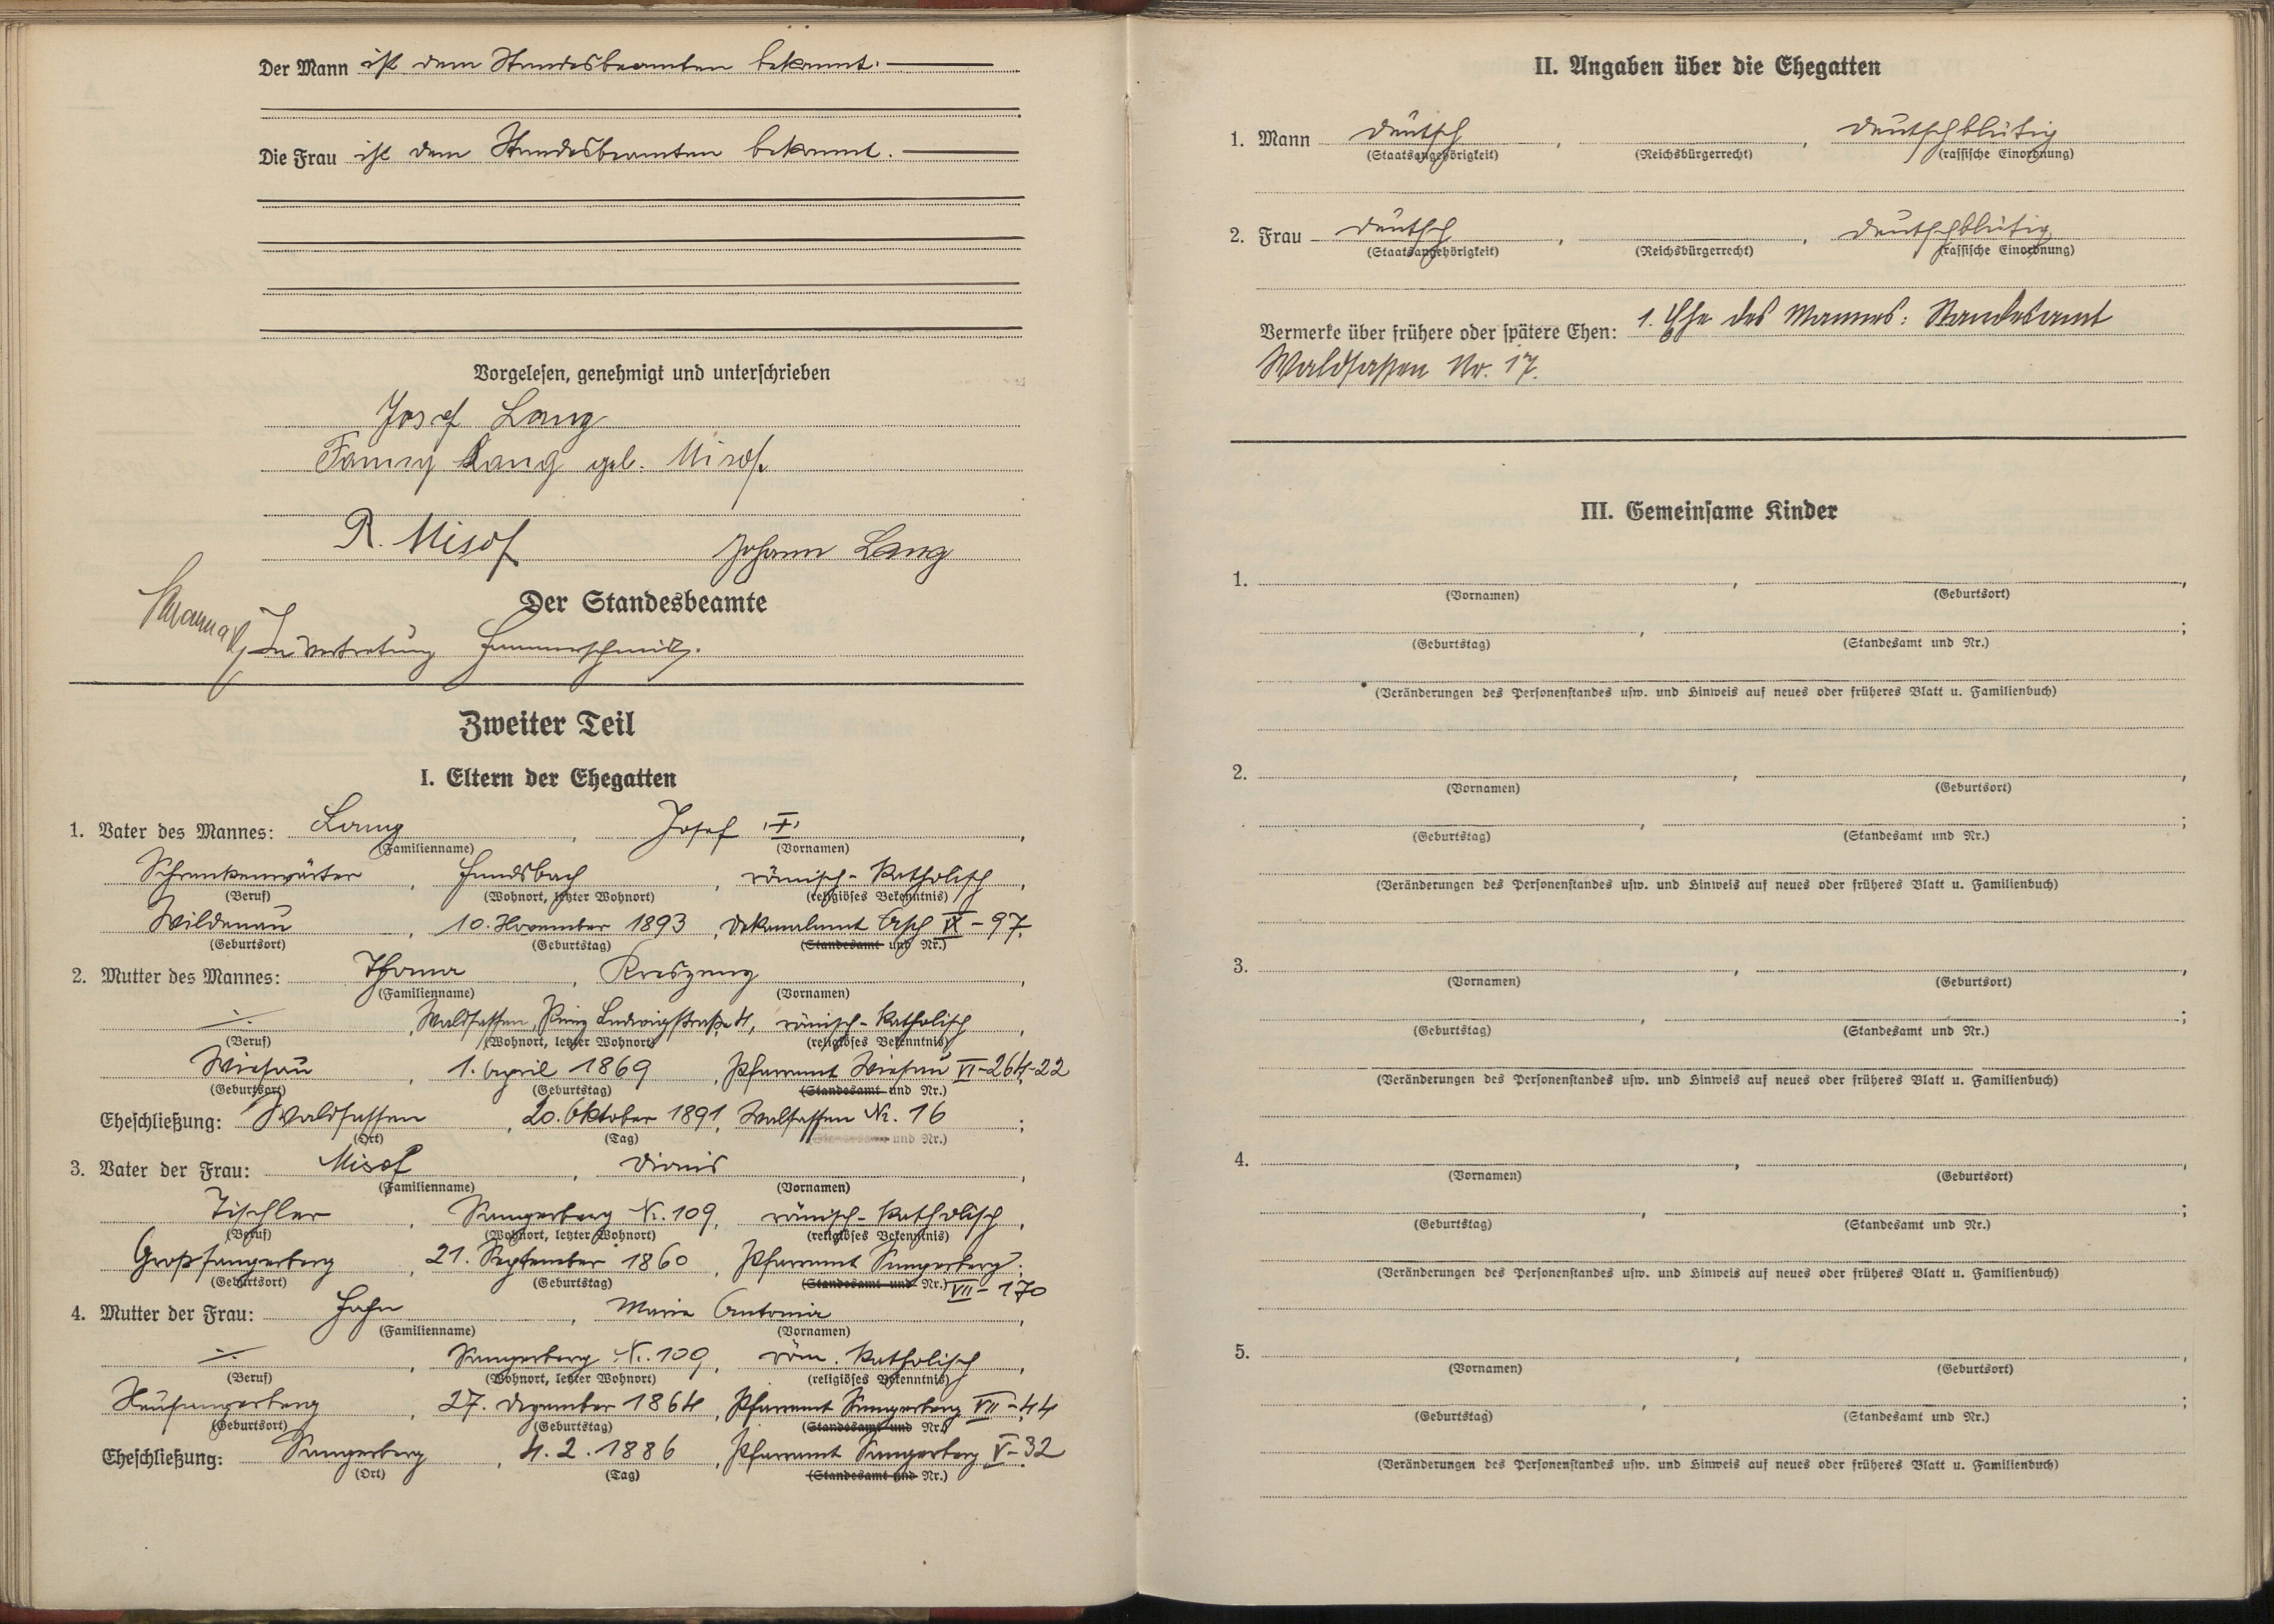 Der Mann ist dem Standesbeamten bekannt.
Die Frau ist dem Standesbeamten bekannt.
Vorgelesen, genehmigt und unterschrieben
Josef Lang
Fanny Lang geb. Misof
R. Misof Johann Lang
Der Standesbeamte
In Vertretung Hammerschmidt.
Zweiter Teil
I. Eltern der Ehegatten
1. Vater des Mannes: Lang, Josef
(Familienname) (Vornamen)
Schrankenwärter, Hundsbach, römisch-katholisch,
(Beruf) (Wohnort, letzter Wohnort) (religiöses Bekenntnis)
Wildenau, 10. November 1893, Dekanalamt Asch IX-97.
(Geburtsort) (Geburtstag) (Standesamt und Nr.)
2. Mutter des Mannes: Thoma, Kreszenz,
(Familienname) (Vornamen)
Waldsassen, Prinz Ludwigstraße 4, römisch-katholisch,
(Beruf) (Wohnort, letzter Wohnort) (religiöses Bekenntnis)
Wiesau, 1. April 1869, Pfarramt Wiesau VI-264-22
(Geburtsort) (Geburtstag) (Standesamt und Nr.)
Eheschließung: Waldsassen, 20. Oktober 1891, Walsassen Nr. 16;
(Ort) (Tag) (Standesamt und Nr.)
3. Vater der Frau: Misof, Dionis,
(Familienname) (Vornamen)
Tischler, Sangerberg Nr. 109, römisch-katholisch,
(Beruf) (Wohnort, letzter Wohnort) (religiöses Bekenntnis)
Großsangerberg, 21. September 1860, Pfarramt Sangerberg;
(Geburtsort) (Geburtstag) (Standesamt und Nr.) VII-170
4. Mutter der Frau: Hahn, Maria Antonia,
(Familienname) (Vornamen)
Sangerberg Nr. 109, röm. katholisch,
(Beruf) (Wohnort, letzter Wohnort) (religiöses Bekenntnis)
Neusangerberg, 27. Dezember 1864, Pfarramt Sangerberg VII-44
(Geburtsort) (Geburtstag) (Standesamt und Nr.)
Eheschließung: Sangerberg, 4.2.1886, Pfarramt Sangerberg V-32
(Ort) (Tag) (Standesamt und Nr.)
II. Angaben über die Ehegatten
1. Mann deutsch, , deutschblütig
(Staatsangehörigkeit) (Reichsbürgerrecht) (rassische Einordnung)
2. Frau deutsch, , deutschblütig
(Staatsangehörigkeit) (Reichsbürgerrecht) (rassische Einordnung)
Vermerke über frühere oder spätere Ehen: 1. Ehe des Mannes: Standesamt
Waldsassen Nr. 17.
III. Gemeinsame Kinder
1. , ,
(Vornamen) (Geburtsort)
, ;
(Geburtstag) (Standesamt und Nr.)
(Veränderungen des Personenstandes usw. und Hinweis auf neues oder früheres Blatt u. Familienbuch)
2. , ,
(Vornamen) (Geburtsort)
, ;
(Geburtstag) (Standesamt und Nr.)
(Veränderungen des Personenstandes usw. und Hinweis auf neues oder früheres Blatt u. Familienbuch)
3. , ,
(Vornamen) (Geburtsort)
, ;
(Geburtstag) (Standesamt und Nr.)
(Veränderungen des Personenstandes usw. und Hinweis auf neues oder früheres Blatt u. Familienbuch)
4. , ,
(Vornamen) (Geburtsort)
, ;
(Geburtstag) (Standesamt und Nr.)
(Veränderungen des Personenstandes usw. und Hinweis auf neues oder früheres Blatt u. Familienbuch)
5. , ,
(Vornamen) (Geburtsort)
, ;
(Geburtstag) (Standesamt und Nr.)
(Veränderungen des Personenstandes usw. und Hinweis auf neues oder früheres Blatt u. Familienbuch)